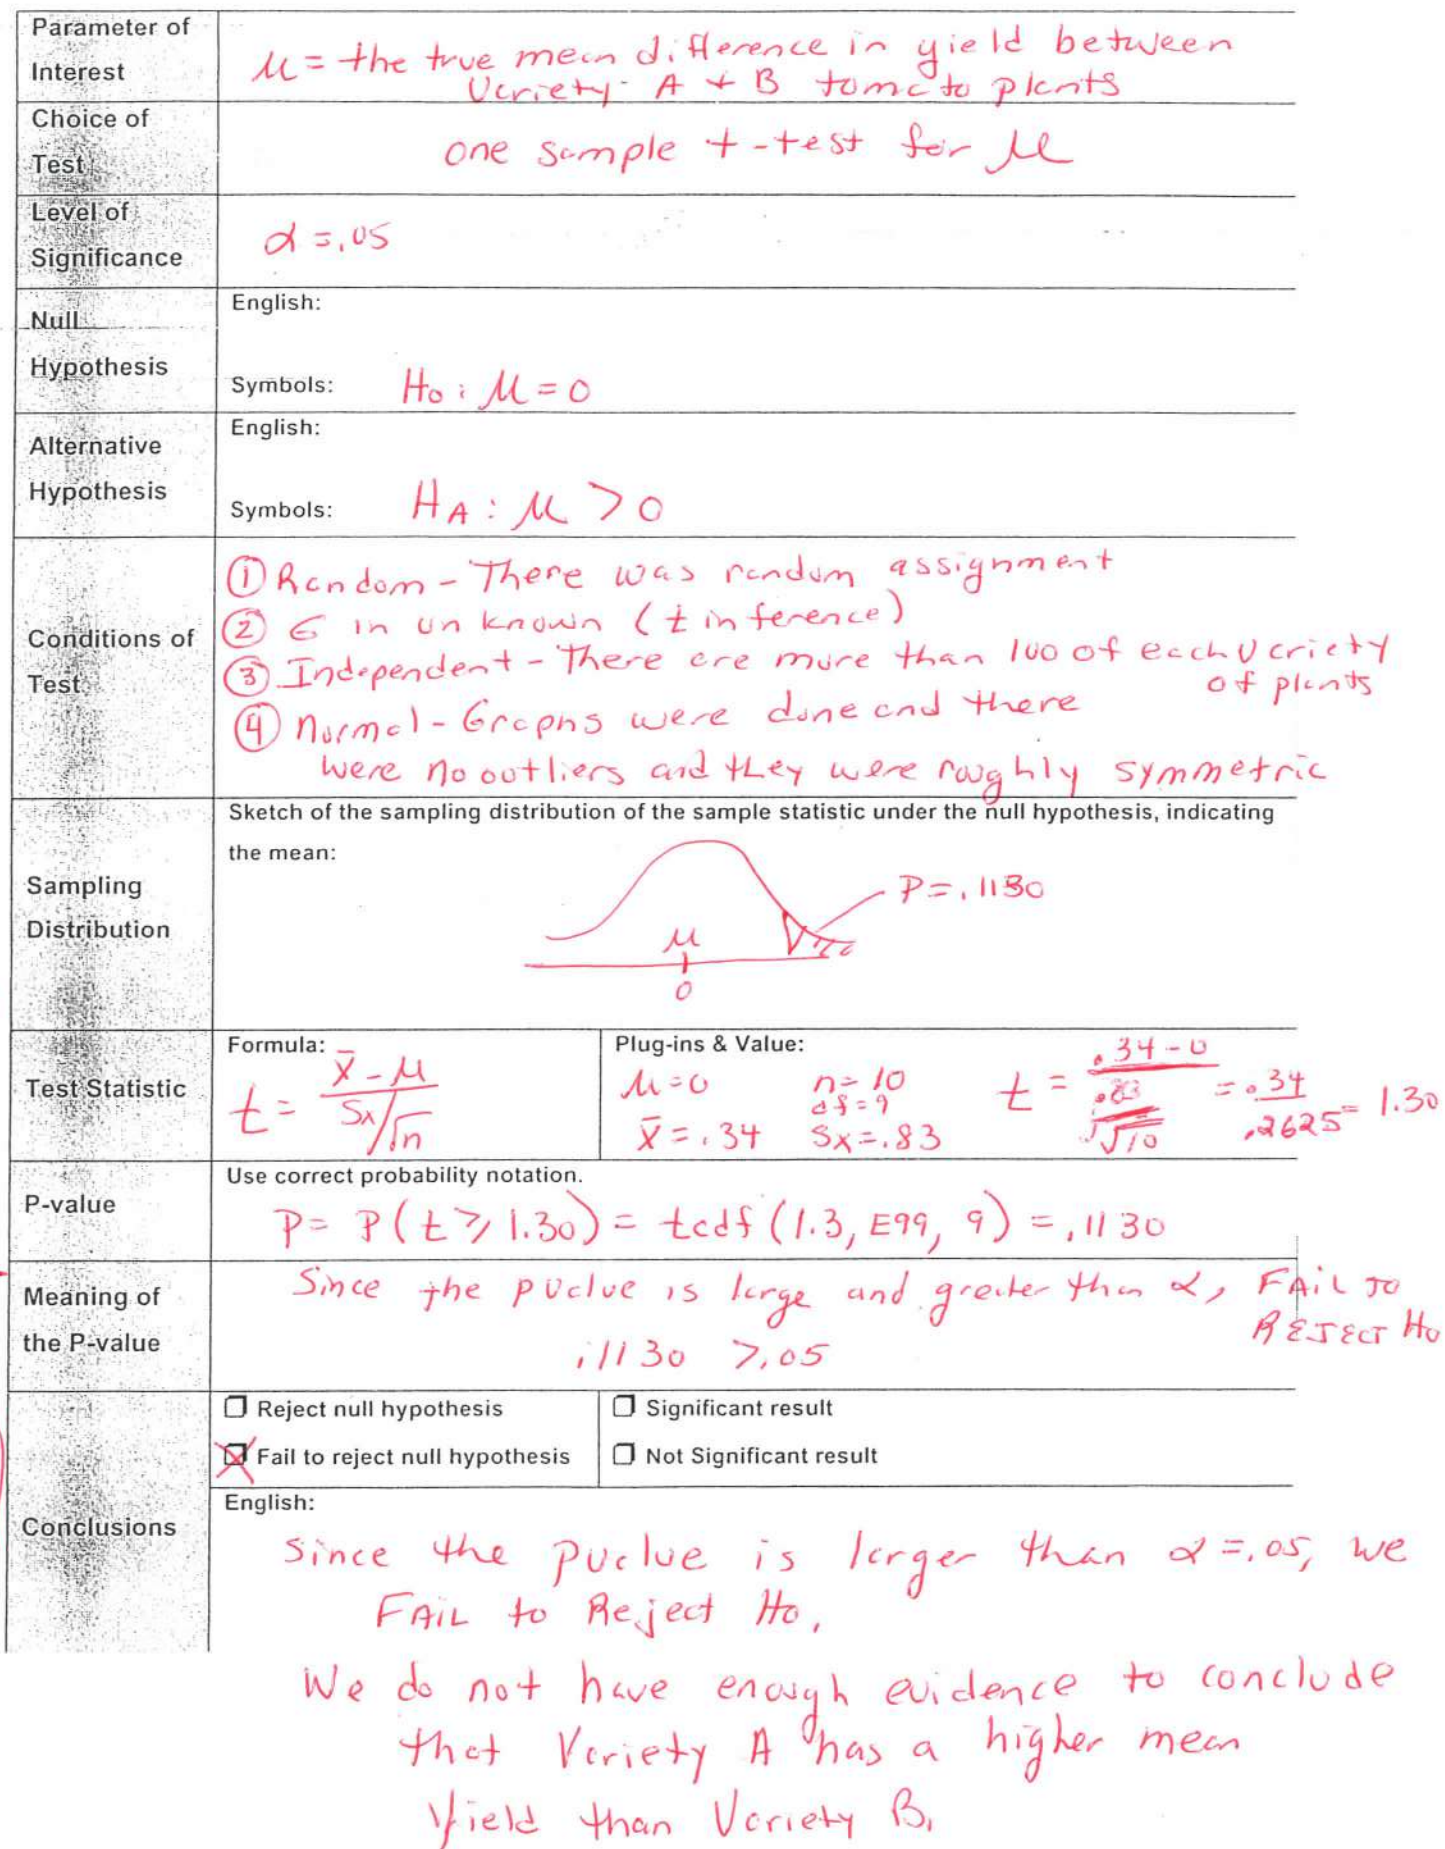 Parameter of
Interest
μ = the true mean difference in yield between
Variety A + B tomato plants
Choice of
Test
one sample t-test for μ
Level of
Significance
α = .05
Null
Hypothesis
English:
Symbols: H₀: μ = 0
Alternative
Hypothesis
English:
Symbols: H_A: μ > 0
Conditions of
Test
① Random - There was random assignment
② σ in unknown (t inference)
③ Independent - There are more than 100 of each variety
of plants
④ Normal - Graphs were done and there
were no outliers and they were roughly symmetric
Sampling
Distribution
Sketch of the sampling distribution of the sample statistic under the null hypothesis, indicating
the mean:
P = .1130
μ
0
Test Statistic
Formula:
t = (x̄ - μ) / (Sx/√n)
Plug-ins & Value:
μ = 0 n = 10
df = 9
x̄ = .34 Sx = .83
t = (.34 - 0) / (.83/√10) = .34/.2625 = 1.30
P-value
Use correct probability notation.
P = P(t ≥ 1.30) = tcdf(1.3, E99, 9) = .1130
Meaning of
the P-value
Since the pvalue is large and greater than α, FAIL TO
REJECT H₀
.1130 > .05
Conclusions
Reject null hypothesis
Significant result
Fail to reject null hypothesis
Not Significant result
English:
Since the pvalue is larger than α = .05, we
FAIL to Reject H₀.
We do not have enough evidence to conclude
that Variety A has a higher mean
yield than Variety B.